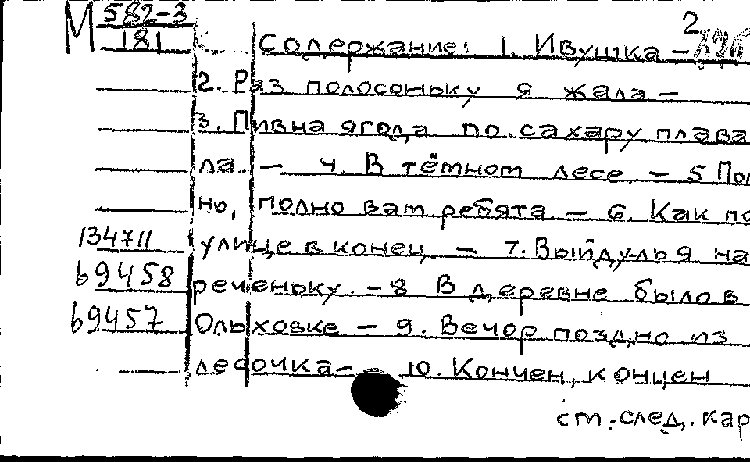 М 582-3
181
2
Содержание: 1. Ивушка –
2. Раз полосоньку я жала –
3. Пивна ягода по сахару плава
ла. – 4. В тёмном лесе – 5 Пол
но, полно вам ребята – 6. Как по
134711 улице в конец – 7. Выйду ль я на
69458 реченьку. – 8 В деревне было в
69457 Ольховке – 9. Вечор поздно из
лесочка – 10. Кончен, концен
см. след. кар